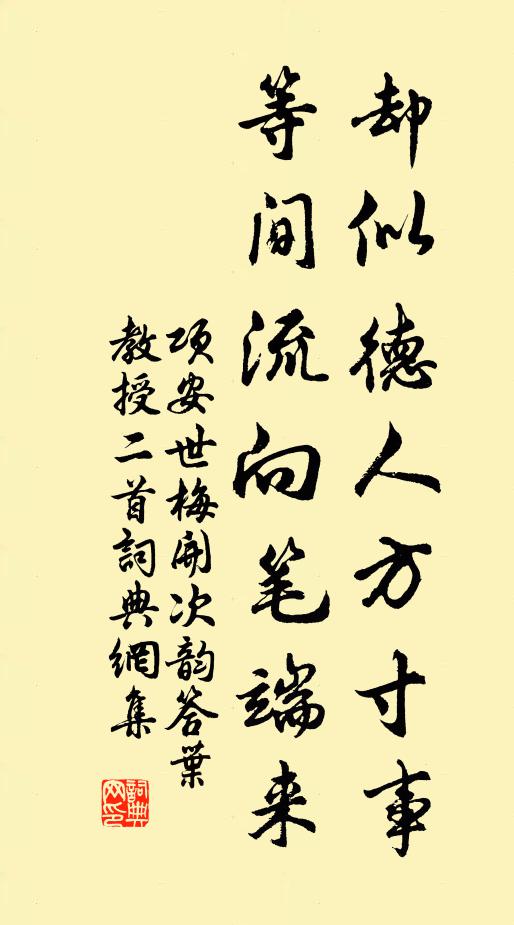 却似德人方寸事
等闲流向笔端来
项安世梅開次韵答葉
教授二首詞典網集
詞典
网印